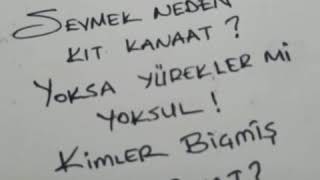 SEVMEK NEDEN
KIT KANAAT ?
YOKSA YÜREKLER Mİ
YOKSUL !
KİMLER BİÇMİŞ